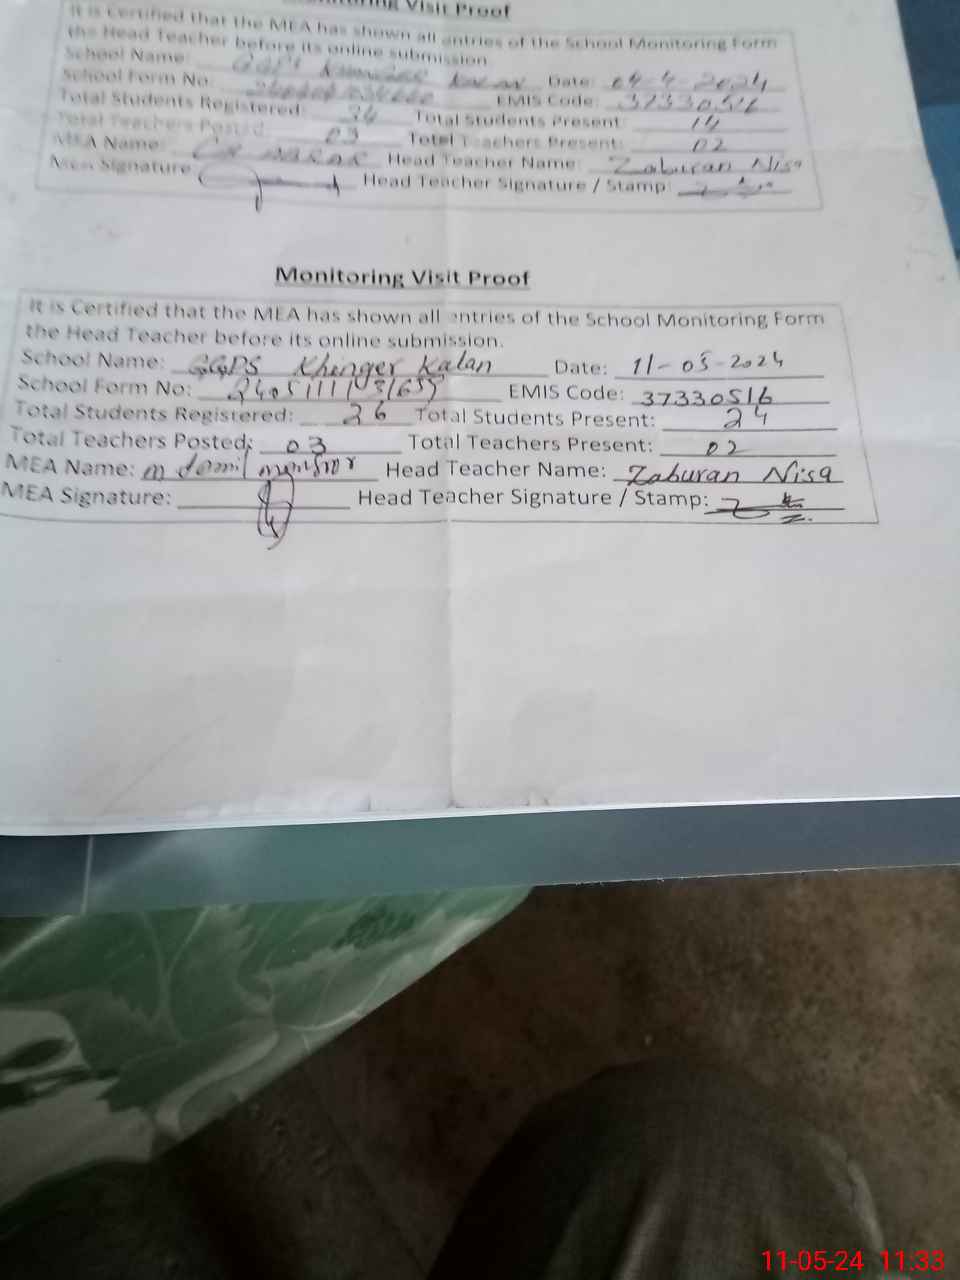 Monitoring Visit Proof
It is Certified that the MEA has shown all entries of the School Monitoring Form
the Head Teacher before its online submission.
School Name: GGPS Khinger Kalan Date: 04-4-2024
School Form No: EMIS Code: 37330516
Total Students Registered: 34 Total Students Present: 14
Total Teachers Posted: 03 Total Teachers Present: 02
MEA Name: Head Teacher Name: Zaburan Nisa
MEA Signature Head Teacher Signature / Stamp:
Monitoring Visit Proof
It is Certified that the MEA has shown all entries of the School Monitoring Form
the Head Teacher before its online submission.
School Name: GGPS Khinger Kalan Date: 11-05-2024
School Form No: EMIS Code: 37330516
Total Students Registered: 26 Total Students Present: 24
Total Teachers Posted: 03 Total Teachers Present: 02
MEA Name: Head Teacher Name: Zaburan Nisa
MEA Signature: Head Teacher Signature / Stamp:
11-05-24 11:33